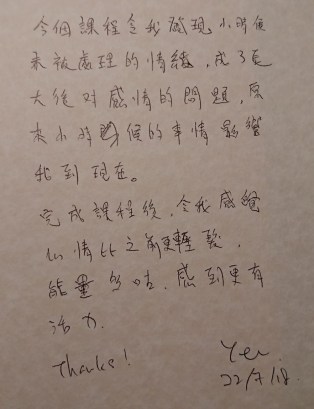 今個課程令我感現小時候
未被處理的情緒，成了長
大後对感情的問題，原
來小時候的事情影響
我到現在。
完成課程後，令我感覺
心情比之前更輕鬆，
能量多咗，感到更有
活力
Thanks!
Yen
22/7/18